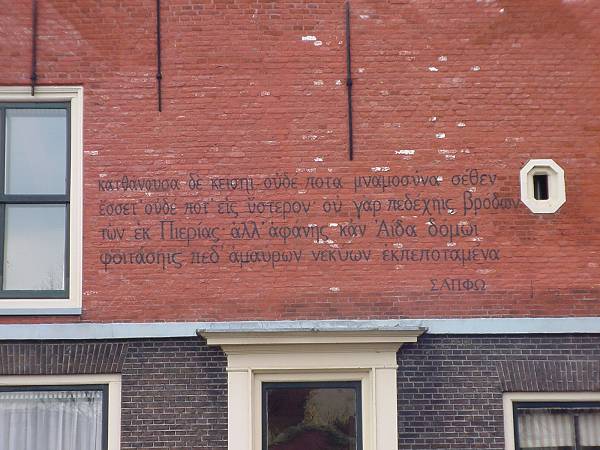 κατθανουσα δε κεισηι ουδε ποτα μναμοσυνα σεθεν
εσσετ' ουδε ποτ' εις υστερον· ου γαρ πεδεχηις βροδων
των εκ Πιεριας· αλλ' αφανης καν Αιδα δομωι
φοιτασηις πεδ' αμαυρων νεκυων εκπεποταμενα
ΣΑΠΦΩ